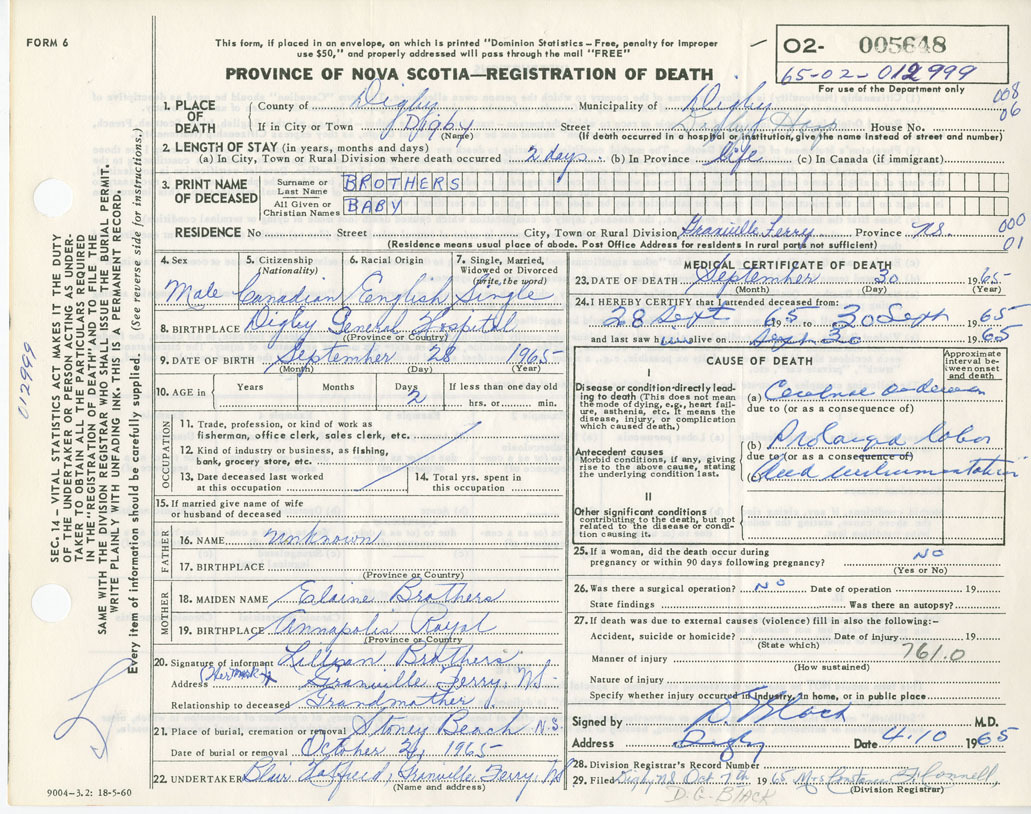 FORM 6
This form, if placed in an envelope, on which is printed "Dominion Statistics – Free, penalty for improper
use $50," and properly addressed will pass through the mail "FREE"
PROVINCE OF NOVA SCOTIA—REGISTRATION OF DEATH
02- 005648
65-02-012999
For use of the Department only
008
06
1. PLACE OF DEATH
County of Digby Municipality of Digby
If in City or Town Digby Street Digby Hosp House No.
(Name) (If death occurred in a hospital or institution, give its name instead of street and number)
2. LENGTH OF STAY (in years, months and days)
(a) In City, Town or Rural Division where death occurred 2 days (b) In Province Life (c) In Canada (if immigrant)
3. PRINT NAME OF DECEASED
Surname or Last Name BROTHERS
All Given or Christian Names BABY
RESIDENCE No Street City, Town or Rural Division Granville Ferry Province NS.
000
01
(Residence means usual place of abode. Post Office Address for residents in rural parts not sufficient)
4. Sex 5. Citizenship (Nationality) 6. Racial Origin 7. Single, Married, Widowed or Divorced (write the word)
Male Canadian English Single
8. BIRTHPLACE Digby General Hospital
(Province or Country)
9. DATE OF BIRTH September 28 1965
(Month) (Day) (Year)
10. AGE in Years Months Days 2 If less than one day old
hrs. or min.
OCCUPATION
11. Trade, profession or kind of work as
fisherman, office clerk, sales clerk, etc.
12. Kind of industry or business, as fishing,
bank, grocery store, etc.
13. Date deceased last worked
at this occupation
14. Total yrs. spent in
this occupation
15. If married give name of wife
or husband of deceased
FATHER
16. NAME Unknown
17. BIRTHPLACE
(Province or Country)
MOTHER
18. MAIDEN NAME Elaine Brothers
19. BIRTHPLACE Annapolis Royal
(Province or Country)
20. Signature of informant Lillian Brothers
(Her mark X
Address Granville Ferry, NS.
Relationship to deceased Grandmother
21. Place of burial, cremation or removal Stoney Beach N.S.
Date of burial or removal October 2, 1965
22. UNDERTAKER Blair Granville Ferry, NS
(Name and address)
9004–3.2: 18-5-60
MEDICAL CERTIFICATE OF DEATH
23. DATE OF DEATH September 30 1965
(Month) (Day) (Year)
24. I HEREBY CERTIFY that I attended deceased from:
28 Sept 1965 to 30 Sept 1965
and last saw him alive on Sept 30 1965
CAUSE OF DEATH
Approximate interval between onset and death
I
Disease or condition directly leading to death (This does not mean the mode of dying, e.g., heart failure, asthenia, etc. It means the disease, injury, or complication which caused death.)
(a)
due to (or as a consequence of)
Antecedent causes
Morbid conditions, if any, giving rise to the above cause, stating the underlying condition last.
(b) Prolonged labor
due to (or as a consequence of)
(c)
II
Other significant conditions
contributing to the death, but not related to the disease or condition causing it.
25. If a woman, did the death occur during
pregnancy or within 90 days following pregnancy? NO
(Yes or No)
26. Was there a surgical operation? NO Date of operation 19
State findings Was there an autopsy?
27. If death was due to external causes (violence) fill in also the following:–
Accident, suicide or homicide? Date of injury 19
(State which)
761.0
Manner of injury
(How sustained)
Nature of injury
Specify whether injury occurred in industry, in home, or in public place
Signed by D. Black M.D.
Address Digby Date 4.10 1965
28. Division Registrar's Record Number
29. Filed Digby NS Oct 7th 1965 Mrs Constance
(Division Registrar)
D.G. BLACK
SEC. 14 – VITAL STATISTICS ACT MAKES IT THE DUTY
OF THE UNDERTAKER OR PERSON ACTING AS UNDER-
TAKER TO OBTAIN ALL THE PARTICULARS REQUIRED
IN THE "REGISTRATION OF DEATH" AND TO FILE THE
SAME WITH THE DIVISION REGISTRAR WHO SHALL ISSUE THE BURIAL PERMIT.
WRITE PLAINLY WITH UNFADING INK. THIS IS A PERMANENT RECORD.
Every item of information should be carefully supplied. (See reverse side for instructions.)
012999